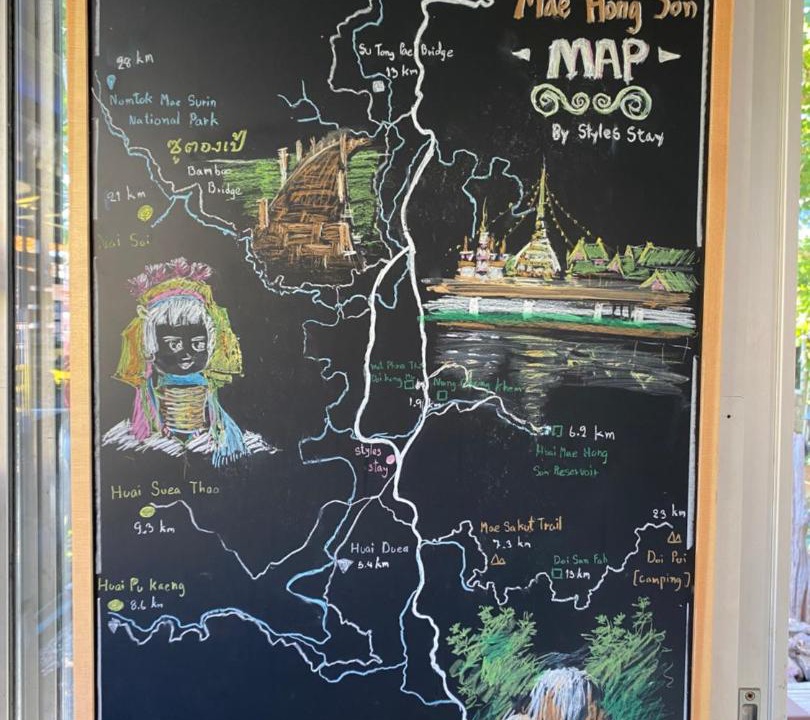 Mae Hong Son
MAP
By Styles Stay
Su Tong Pae Bridge
13 km
28 km
Namtok Mae Surin
National Park
ซูตองเป้
Bamboo
Bridge
21 km
Nai Soi
Wat Phra
Doi Kong
Nong
Kham
6.2 km
Mae Hong
Son Reservoir
styles
stay
Huai Suea Thao
9.3 km
Huai Duea
5.4 km
Mae Sakut Trail
7.3 km
Doi San Fah
13 km
23 km
Doi Pui
[camping]
Huai Pu Kaeng
8.6 km